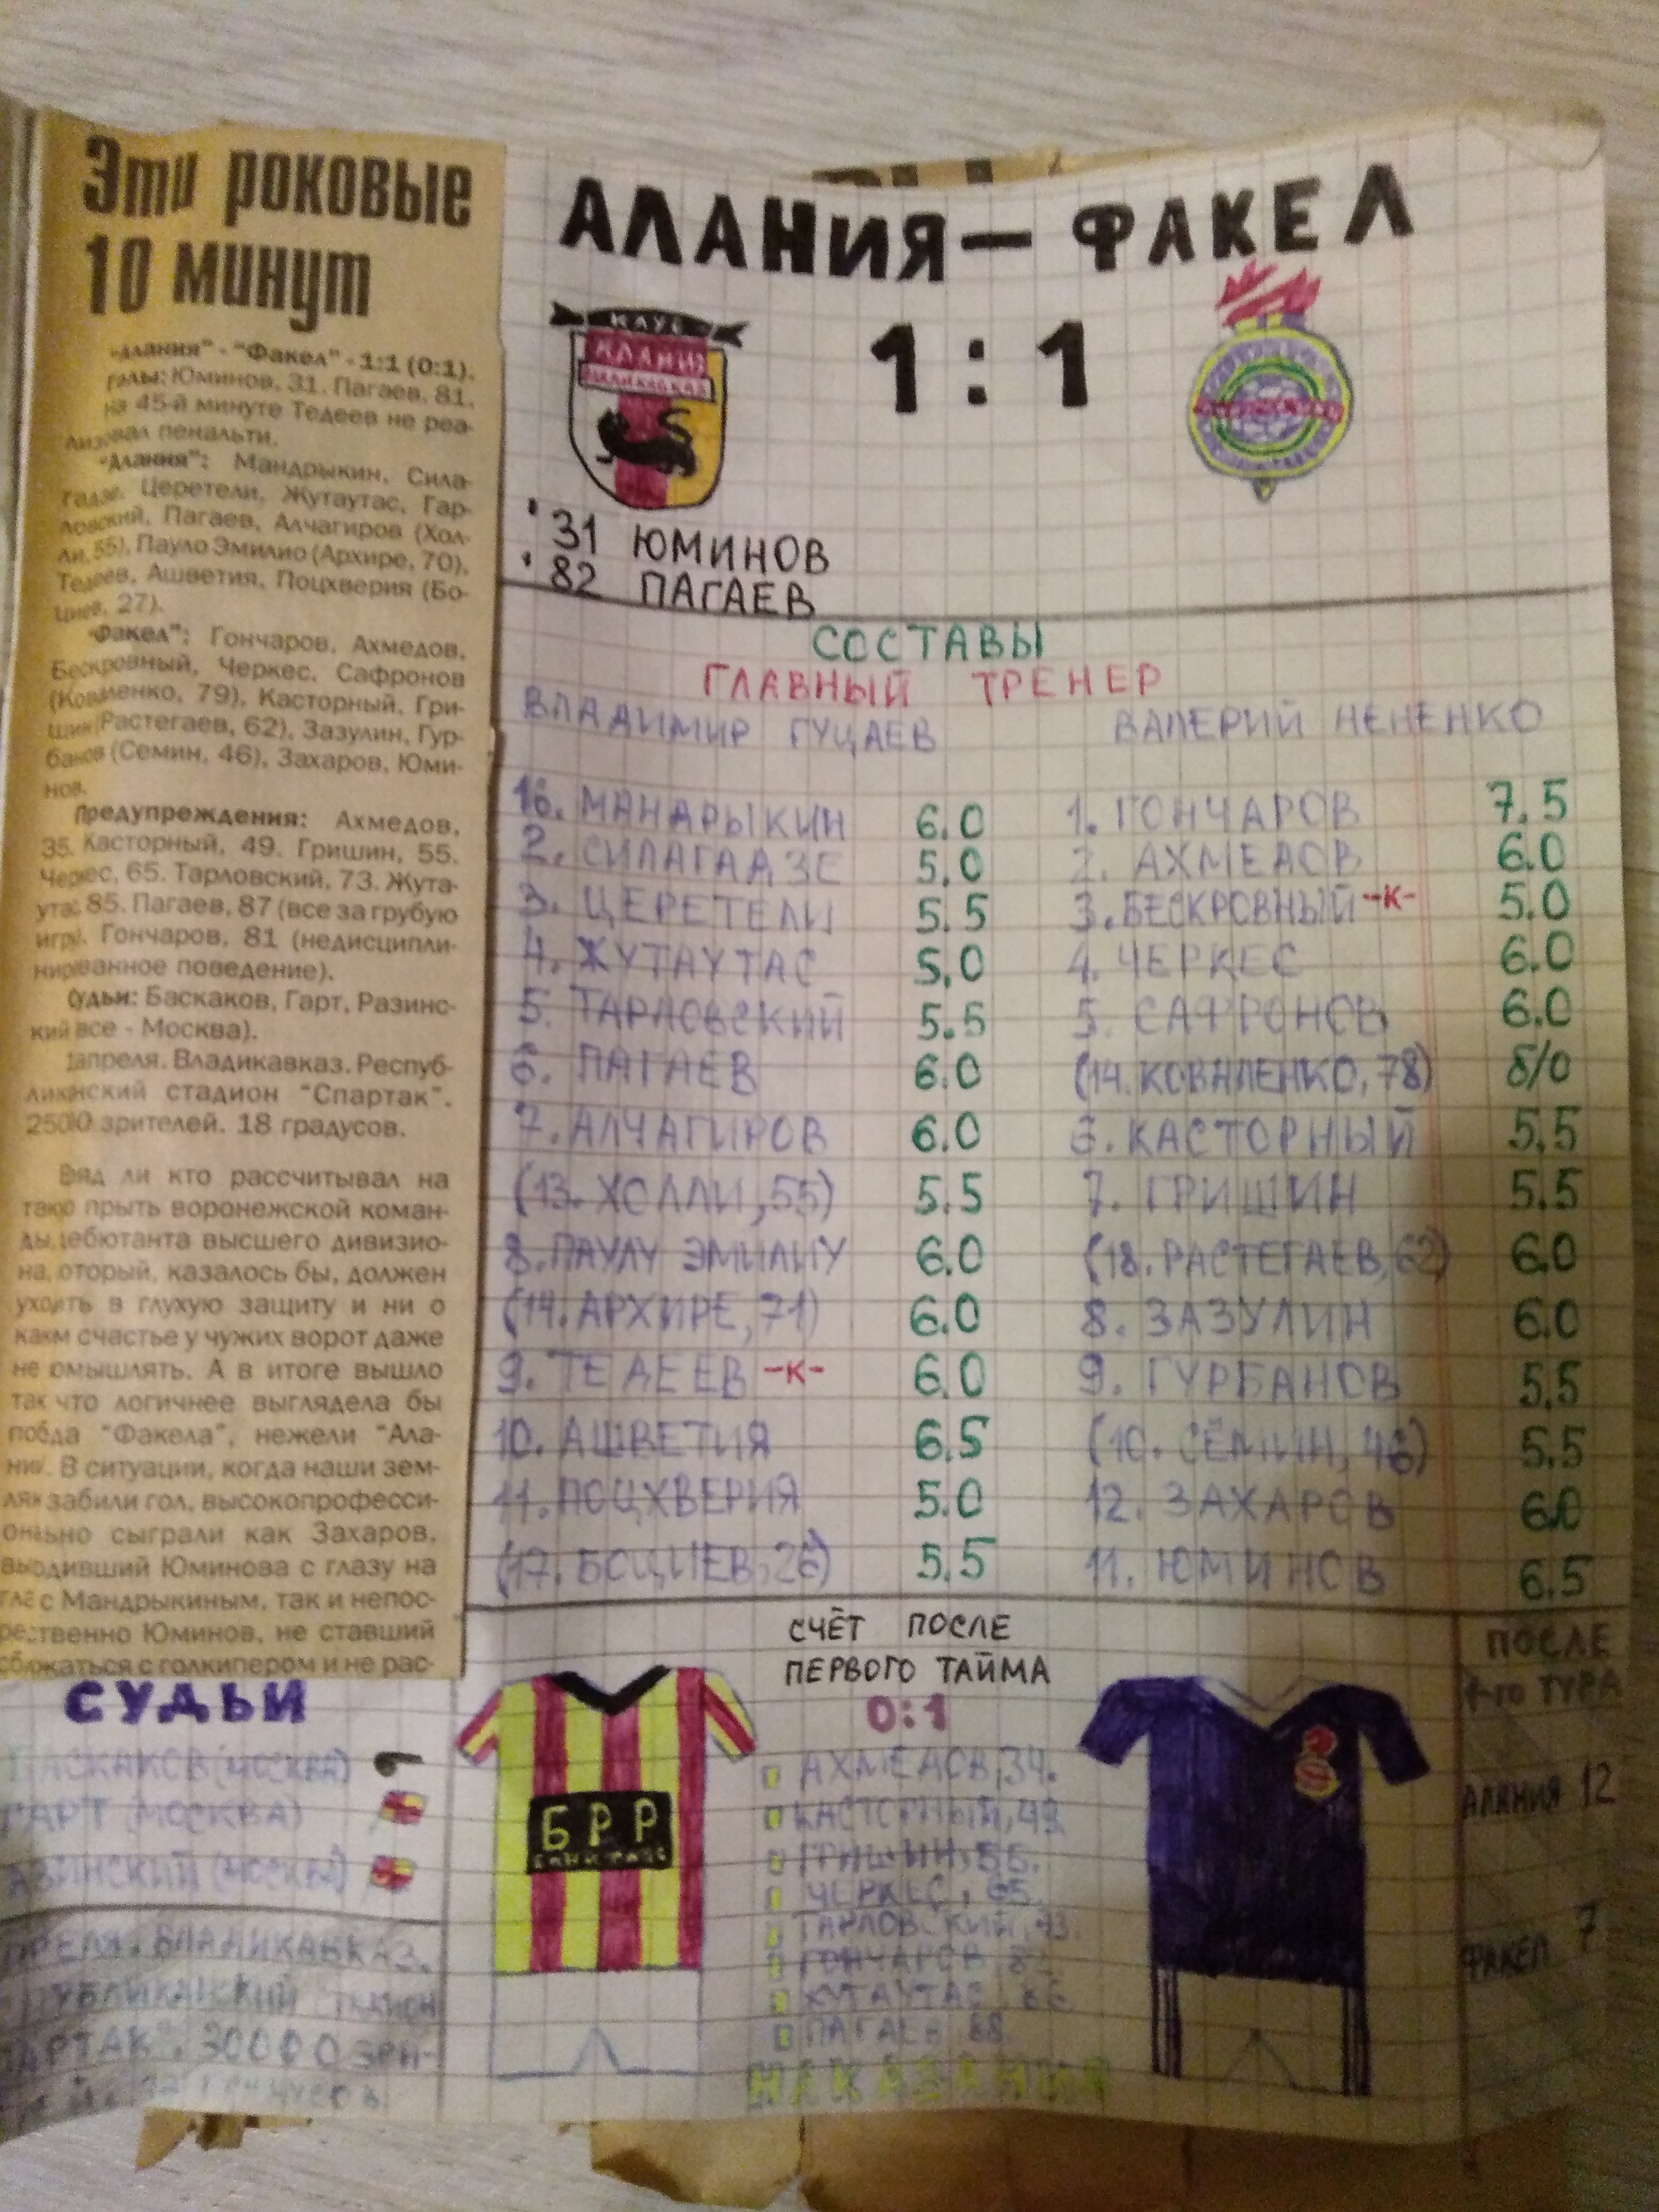 Эти роковые
10 минут
"Алания" - "Факел" - 1:1 (0:1).
Голы: Юминов, 31. Пагаев, 81.
на 45-й минуте Тедеев не реа-
лизовал пенальти.
"Алания": Мандрыкин, Сила-
гадзе, Церетели, Жутаутас, Тар-
ловский, Пагаев, Алчагиров (Хол-
ли, 55), Пауло Эмилио (Архире, 70),
Тедеев, Ашветия, Поцхверия (Бо-
циев, 27).
"Факел": Гончаров, Ахмедов,
Бескровный, Черкес, Сафронов
(Коваленко, 79), Касторный, Гри-
шин (Растегаев, 62), Зазулин, Гур-
банов (Семин, 46), Захаров, Юми-
нов.
Предупреждения: Ахмедов,
35. Касторный, 49. Гришин, 55.
Черкес, 65. Тарловский, 73. Жута-
утас, 85. Пагаев, 87 (все за грубую
игру). Гончаров, 81 (недисципли-
нированное поведение).
Судьи: Баскаков, Гарт, Разинс-
кий все - Москва).
апреля. Владикавказ. Респуб-
ликанский стадион "Спартак".
25000 зрителей. 18 градусов.
Вряд ли кто рассчитывал на
такую прыть воронежской коман-
ды, дебютанта высшего дивизио-
на, который, казалось бы, должен
уходить в глухую защиту и ни о
каком счастье у чужих ворот даже
не помышлять. А в итоге вышло
так что логичнее выглядела бы
победа "Факела", нежели "Ала-
нии". В ситуации, когда наши зем-
ляки забили гол, высокопрофесси-
онально сыграли как Захаров,
выводивший Юминова с глазу на
глаз с Мандрыкиным, так и непос-
редственно Юминов, не ставший
сближаться с голкипером и не рас-
АЛАНИЯ — ФАКЕЛ
КЛУБ
АЛАНИЯ
ВЛАДИКАВКАЗ
1 : 1
' 31 ЮМИНОВ
' 82 ПАГАЕВ
СОСТАВЫ
ГЛАВНЫЙ ТРЕНЕР
ВЛАДИМИР ГУЦАЕВ ВАЛЕРИЙ НЕНЕНКО
16. МАНДРЫКИН 6.0 1. ГОНЧАРОВ 7.5
2. СИЛАГАДЗЕ 5.0 2. АХМЕДОВ 6.0
3. ЦЕРЕТЕЛИ 5.5 3. БЕСКРОВНЫЙ -К- 5.0
4. ЖУТАУТАС 5.0 4. ЧЕРКЕС 6.0
5. ТАРЛОВСКИЙ 5.5 5. САФРОНОВ 6.0
6. ПАГАЕВ 6.0 (14. КОВАЛЕНКО, 78) б/о
7. АЛЧАГИРОВ 6.0 6. КАСТОРНЫЙ 5.5
(13. ХОЛЛИ, 55) 5.5 7. ГРИШИН 5.5
8. ПАУЛУ ЭМИЛИУ 6.0 (18. РАСТЕГАЕВ, 62) 6.0
(14. АРХИРЕ, 71) 6.0 8. ЗАЗУЛИН 6.0
9. ТЕДЕЕВ -К- 6.0 9. ГУРБАНОВ 5.5
10. АШВЕТИЯ 6.5 (10. СЁМИН, 46) 5.5
11. ПОЦХВЕРИЯ 5.0 12. ЗАХАРОВ 6.0
(17. БОЦИЕВ, 26) 5.5 11. ЮМИНОВ 6.5
СУДЬИ
БАСКАКОВ (МОСКВА)
ГАРТ (МОСКВА)
АЗИНСКИЙ (МОСКВА)
ПРЕЛЯ. ВЛАДИКАВКАЗ.
УБЛИКАНСКИЙ СТАДИОН
ПАРТАК". 30000 ЗРИ-
БРР
СЧЁТ ПОСЛЕ
ПЕРВОГО ТАЙМА
0:1
АХМЕДОВ, 34.
КАСТОРНЫЙ, 49.
ГРИШИН, 56.
ЧЕРКЕС, 65.
ТАРЛОВСКИЙ, 73.
ГОНЧАРОВ, 82
ЖУТАУТАС, 86
ПАГАЕВ 88.
НАКАЗАНИЯ
ПОСЛЕ
ТУРА
АЛАНИЯ 12
ФАКЕЛ 7